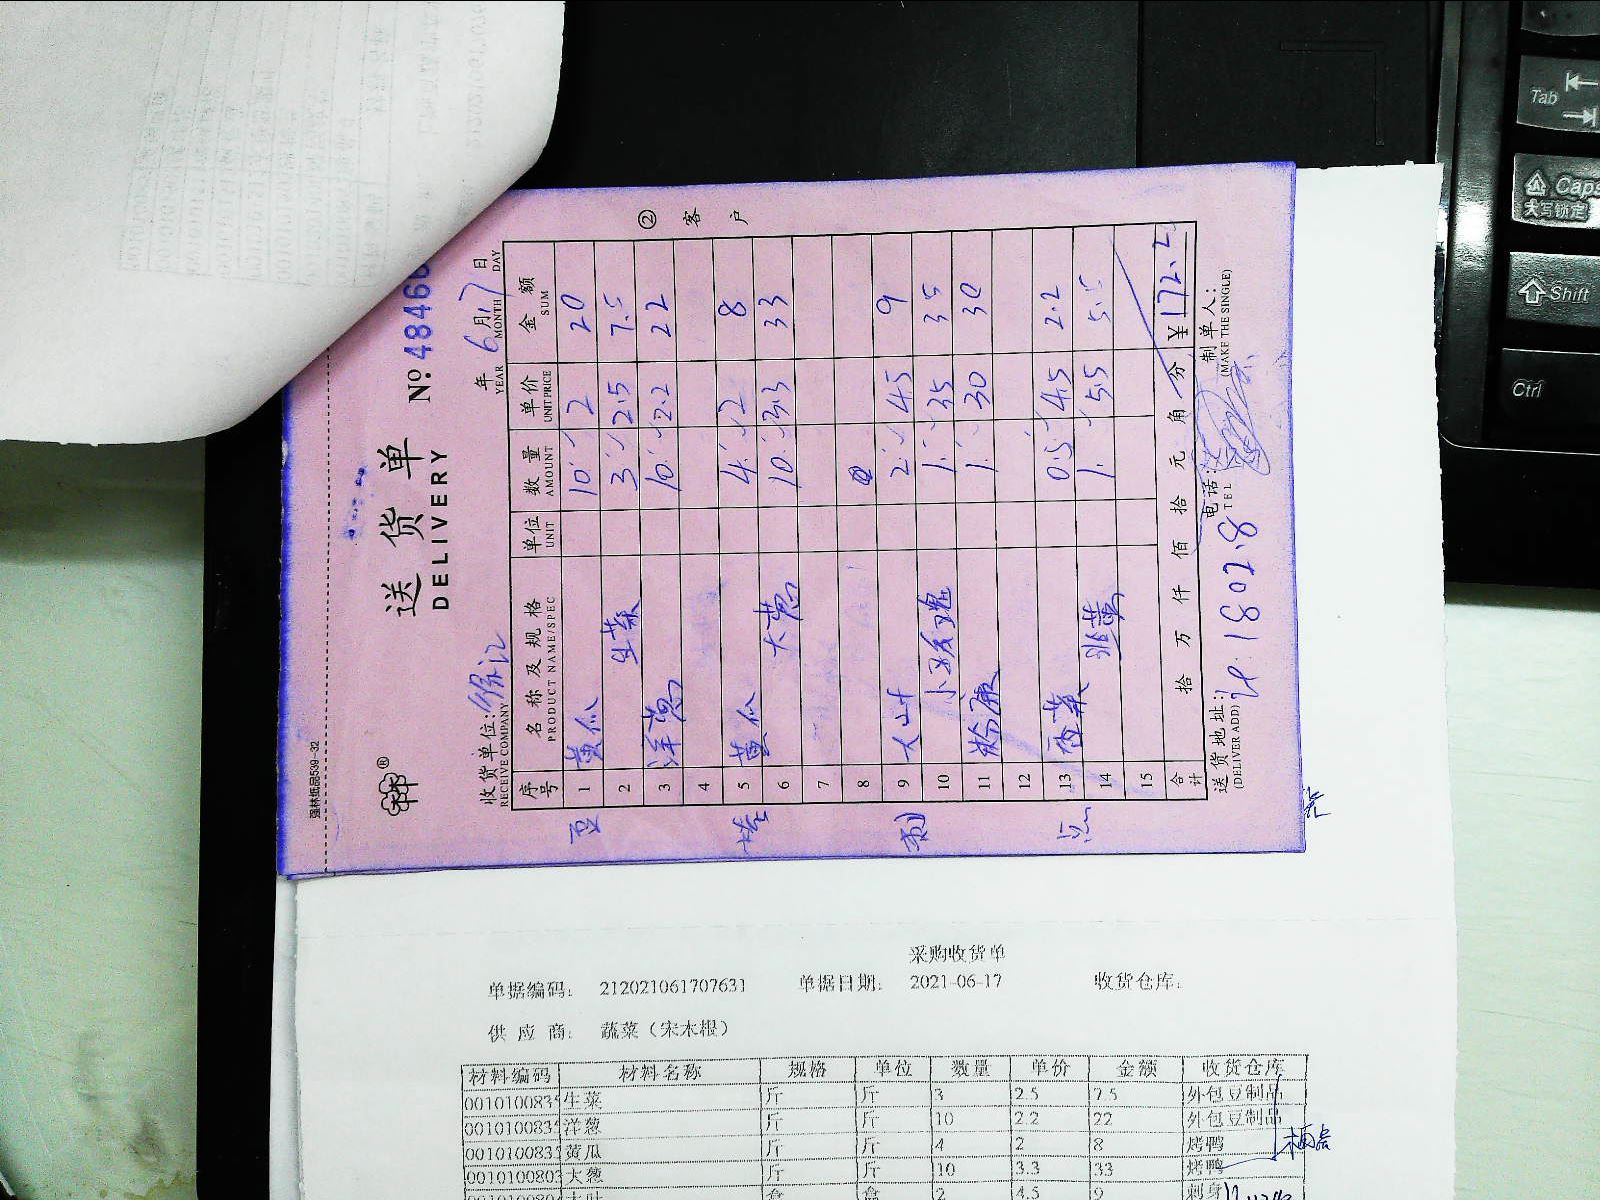 强林纸品539-32
送货单
DELIVERY
№ 4846
② 客户
收货单位:
RECEIVE COMPANY
年 6月17日
YEAR MONTH DAY
序号 名称及规格 单位 数量 单价 金额
PRODUCT NAME/SPEC UNIT AMOUNT UNIT PRICE SUM
豆 1 黄瓜 10 2 20
2 生菜 3 2.5 7.5
3 洋葱 10 2.2 22
4
烤 5 黄瓜 4 2 8
6 大葱 10 3.3 33
7
8
刺 9 大叶 2 4.5 9
10 小玫瑰 1 35 35
11 1 30 30
12
点 13 香菜 0.5 4.5 2.2
14 韭菜 1 5.5 5.5
15
合计 拾 万 仟 佰 拾 元 角 分 ¥172.2
送货地址:
(DELIVER ADD)
电话:
TEL
制单人:
(MAKE THE SINGLE)
1802.8
采购收货单
单据编码: 212021061707631 单据日期: 2021-06-17 收货仓库:
供应商: 蔬菜（宋木根）
材料编码 材料名称 规格 单位 数量 单价 金额 收货仓库
001010083 生菜 斤 斤 3 2.5 7.5 外包豆制品
001010083 洋葱 斤 斤 10 2.2 22 外包豆制品
001010083 黄瓜 斤 斤 4 2 8 烤鸭
001010080 大葱 斤 斤 10 3.3 33 烤鸭
大叶 盒 盒 2 4.5 9 刺身
Tab
Caps
大写锁定
Shift
Ctrl